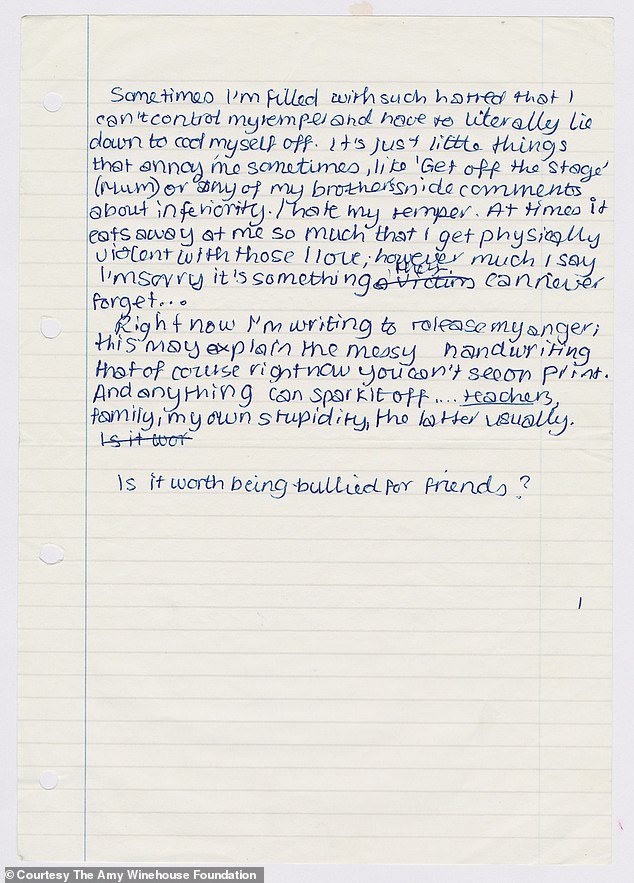 Sometimes I'm filled with such hatred that I
can't control my temper and have to literally lie
down to cool myself off. It's just little things
that annoy me sometimes, like 'Get off the stage'
(Mum) or any of my brothers snide comments
about inferiority. I hate my temper. At times it
eats away at me so much that I get physically
violent with those I love; however much I say
I'm sorry it's something a victim they can never
forget...
Right now I'm writing to release my anger;
this may explain the messy handwriting
that of course right now you can't see on print.
And anything can spark it off.... teachers,
family, my own stupidity, the latter usually.
Is it wor
Is it worth being bullied for friends?
1
© Courtesy The Amy Winehouse Foundation